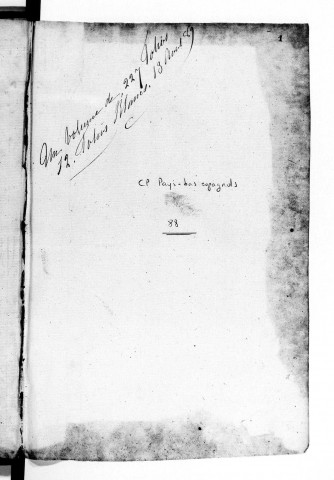 1
Un Volume de 227 Folios
12. Folios Blancs. 13 Aout
CP Pays-bas espagnols
88